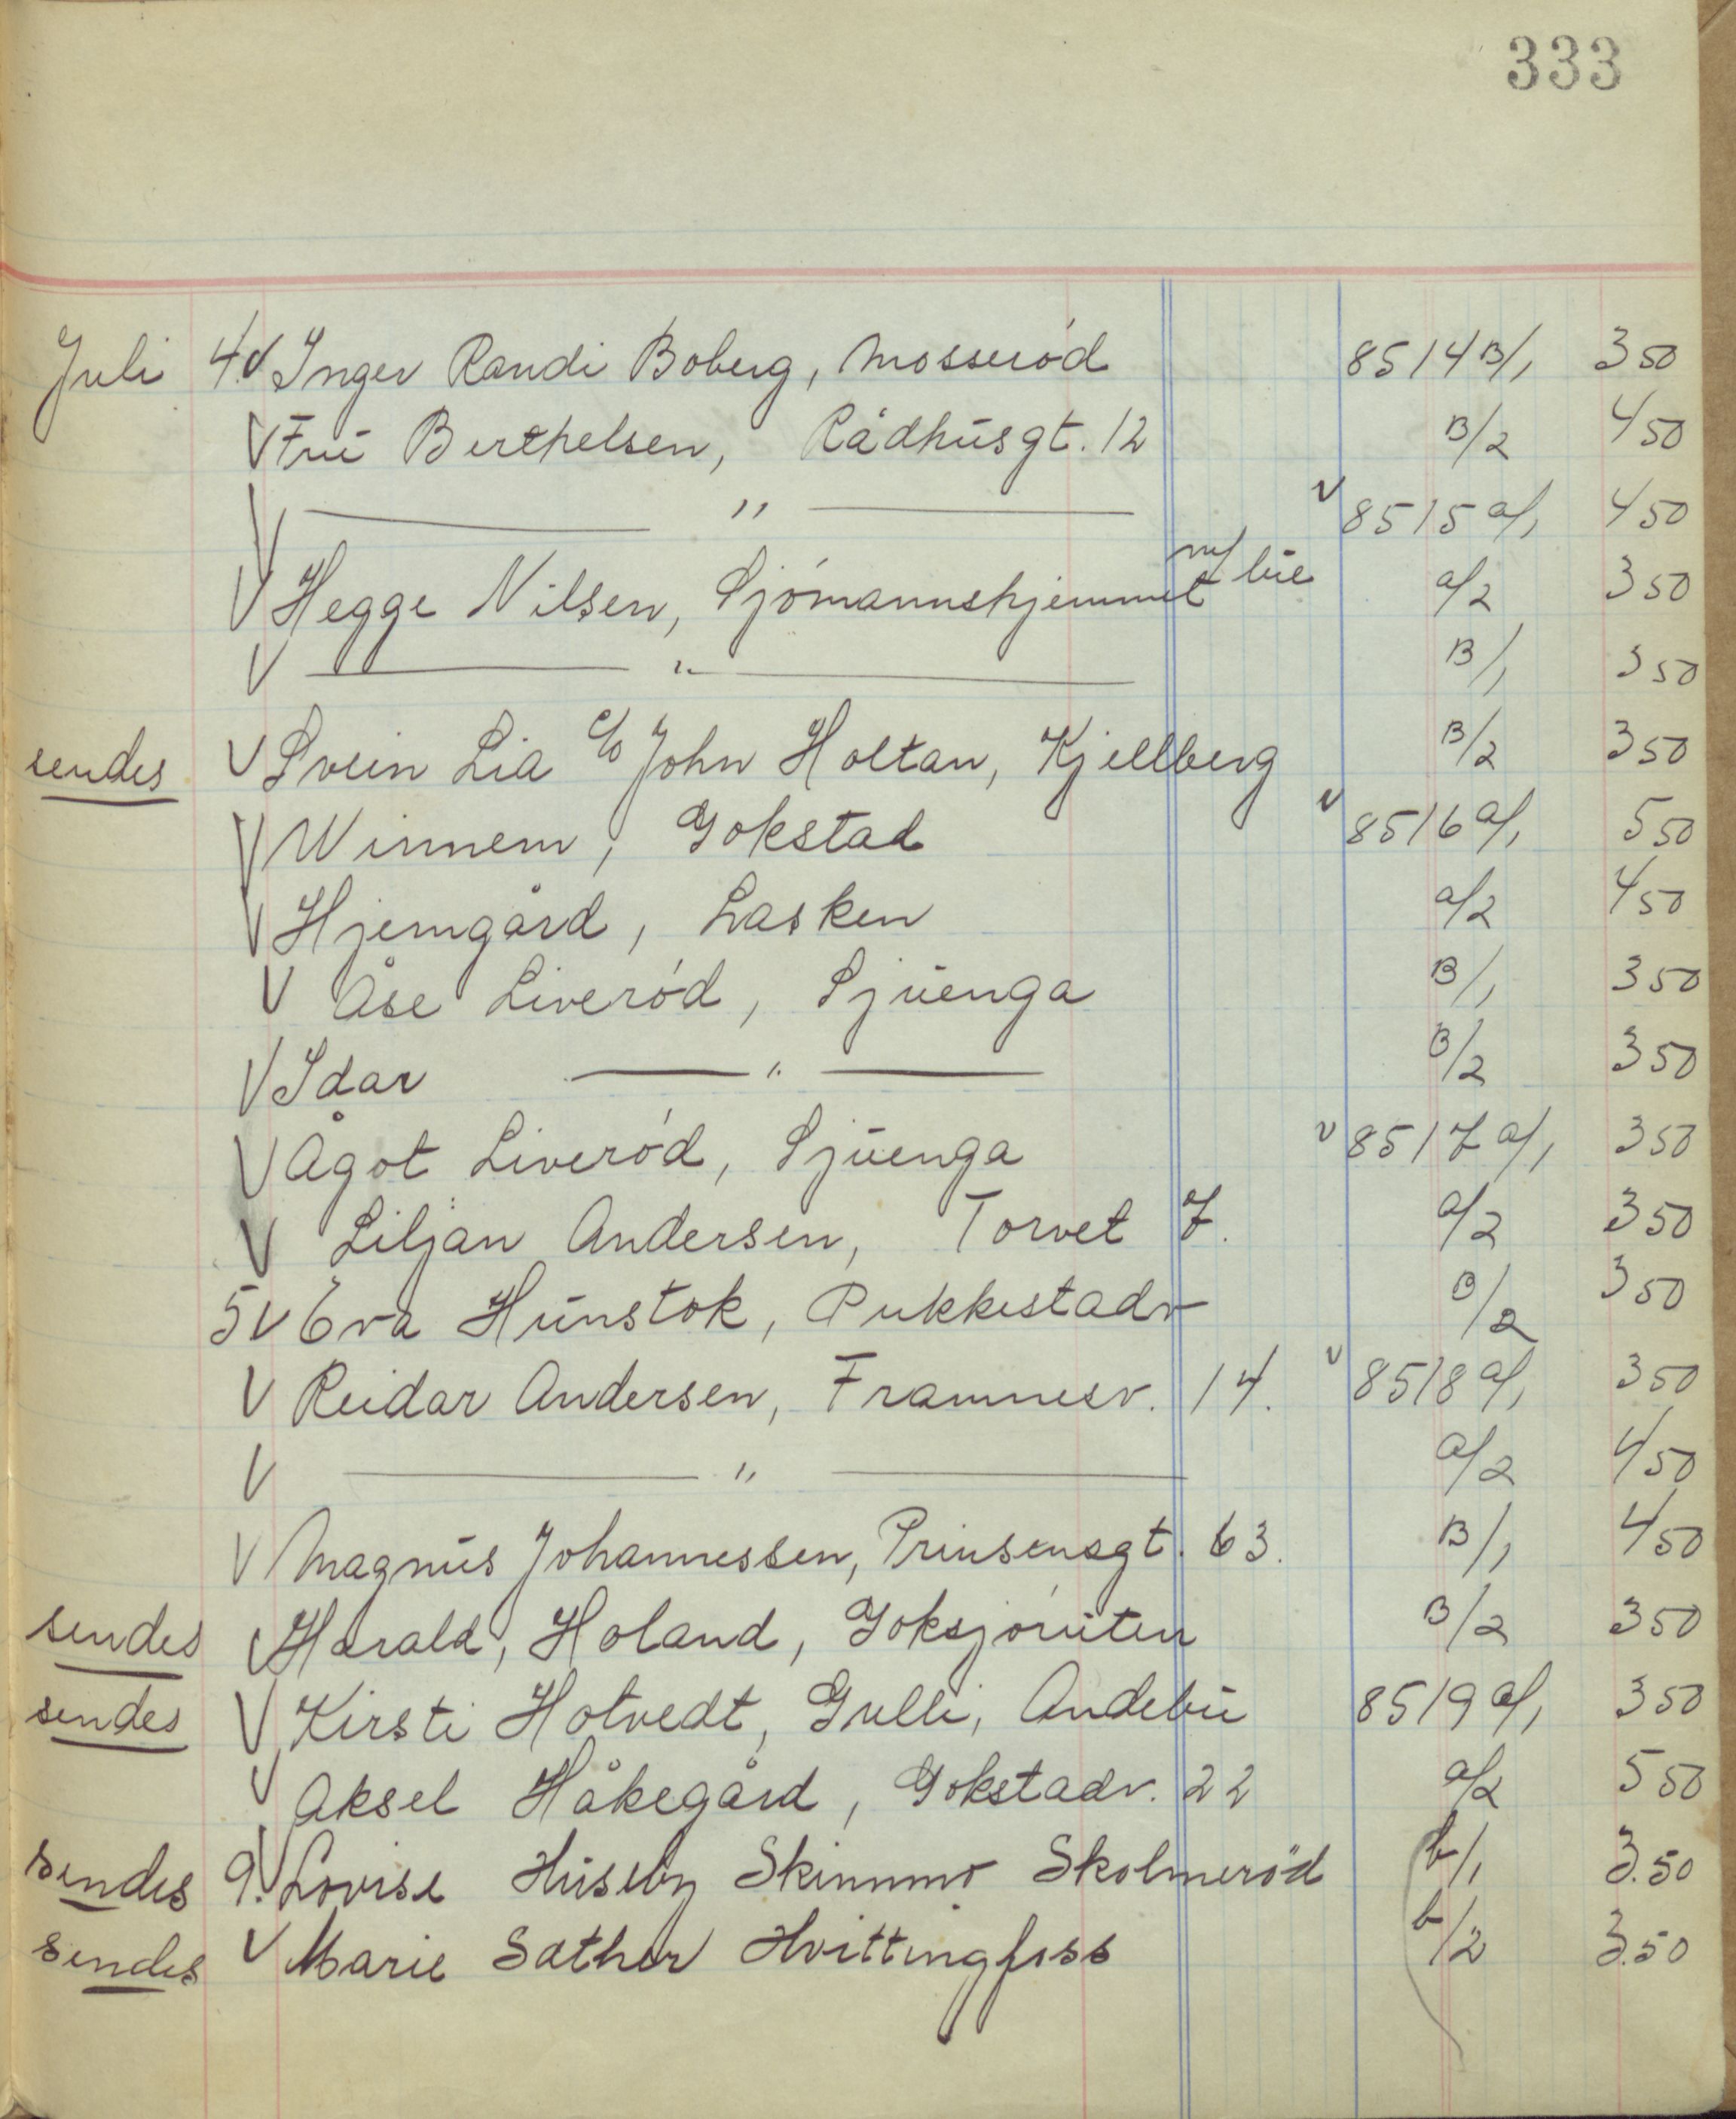 333
Juli 4. V Inger Randi Boberg, Mosserød 8514 B/1 3 50
V Frü Berthelsen, Rådhüsgt. 12 B/2 4 50
V — " — V 8515 a/1 4 50
V Hegge Nilsen, Sjømannshjemmet m/ bil a/2 3 50
V — " — B/1 3 50
sendes V Svein Lia c/o John Holtan, Kjellberg B/2 3 50
V Winnem, Gokstad V 8516 a/1 5 50
V Hjemgård, Lasken a/2 4 50
V Åse Liverød, Sjüenga B/1 3 50
V Idar — " — B/2 3 50
V Ågot Liverød, Sjüenga V 8517 a/1 3 50
V Liljan Andersen, Torvet 7. a/2 3 50
5 V Eva Hünstok, Pukkestadv B/2 3 50
V Reidar Andersen, Framnesv. 14. V 8518 a/1 3 50
V — " — a/2 4 50
V Magnüs Johannessen, Prinsensgt. 63. B/1 4 50
sendes V Harald, Holand, Goksjørüten B/2 3 50
sendes V Kirsti Hotvedt, Gulli, Andebü 8519 a/1 3 50
V Aksel Håkegård, Gokstadv. 22 a/2 5 50
sendes 9. V Lovise Hüseby Skinnmo Skolmerød b/1 3.50
sendes V Marie Sather Hvittingfoss b/2 3.50